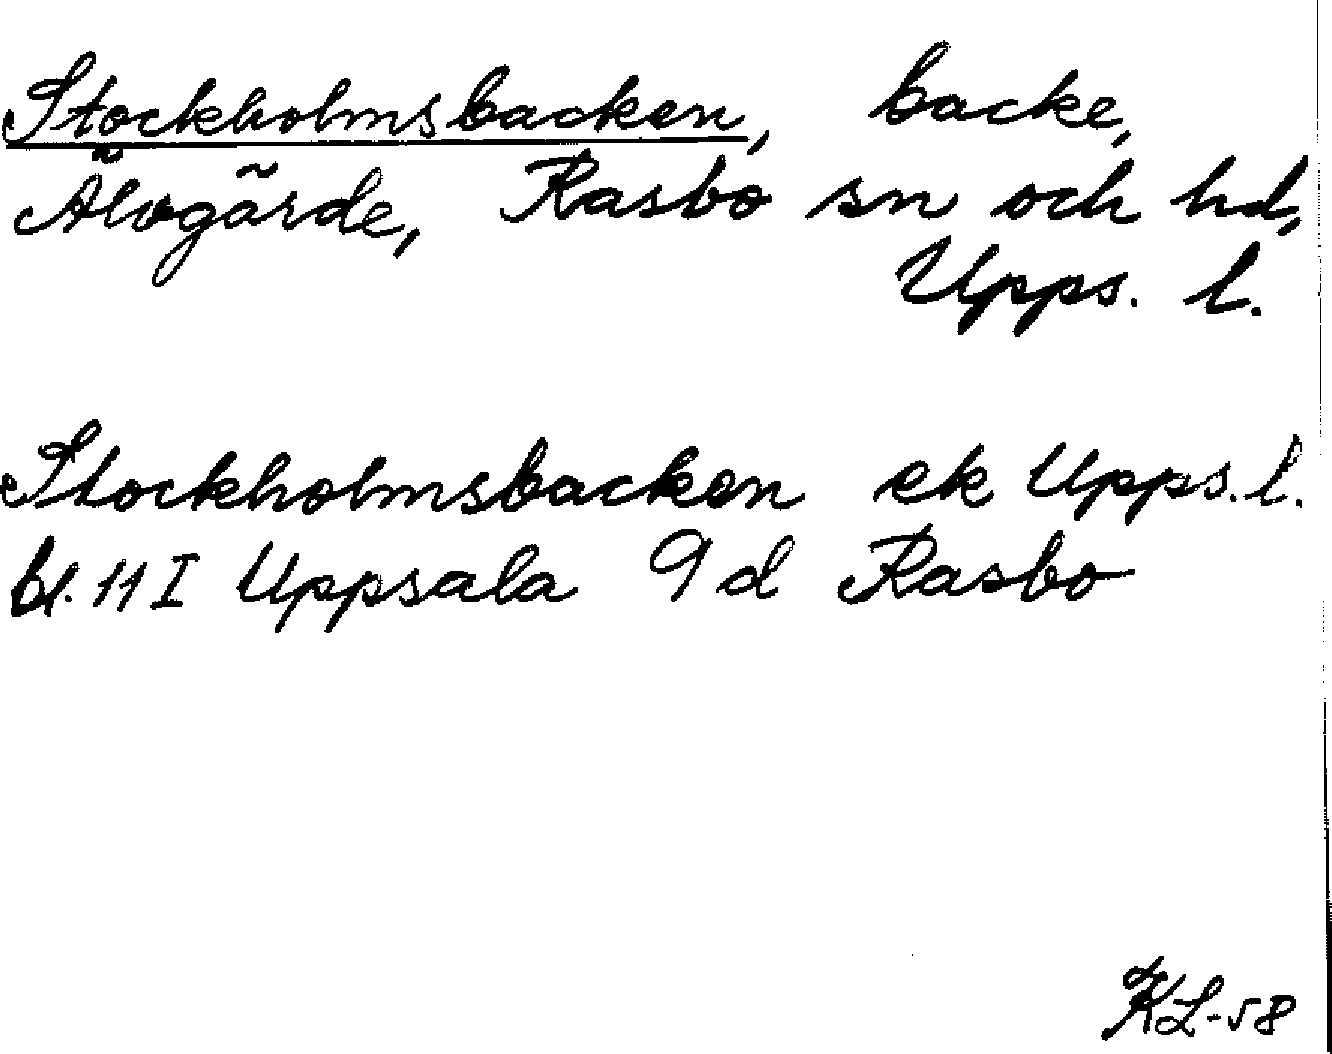 Stockholmsbacken, backe,
Älvgärde, Rasbo sn och hd,
Upps. l.
Stockholmsbacken ek Upps. l.
bl. 11 I Uppsala 9 d Rasbo
KL-58